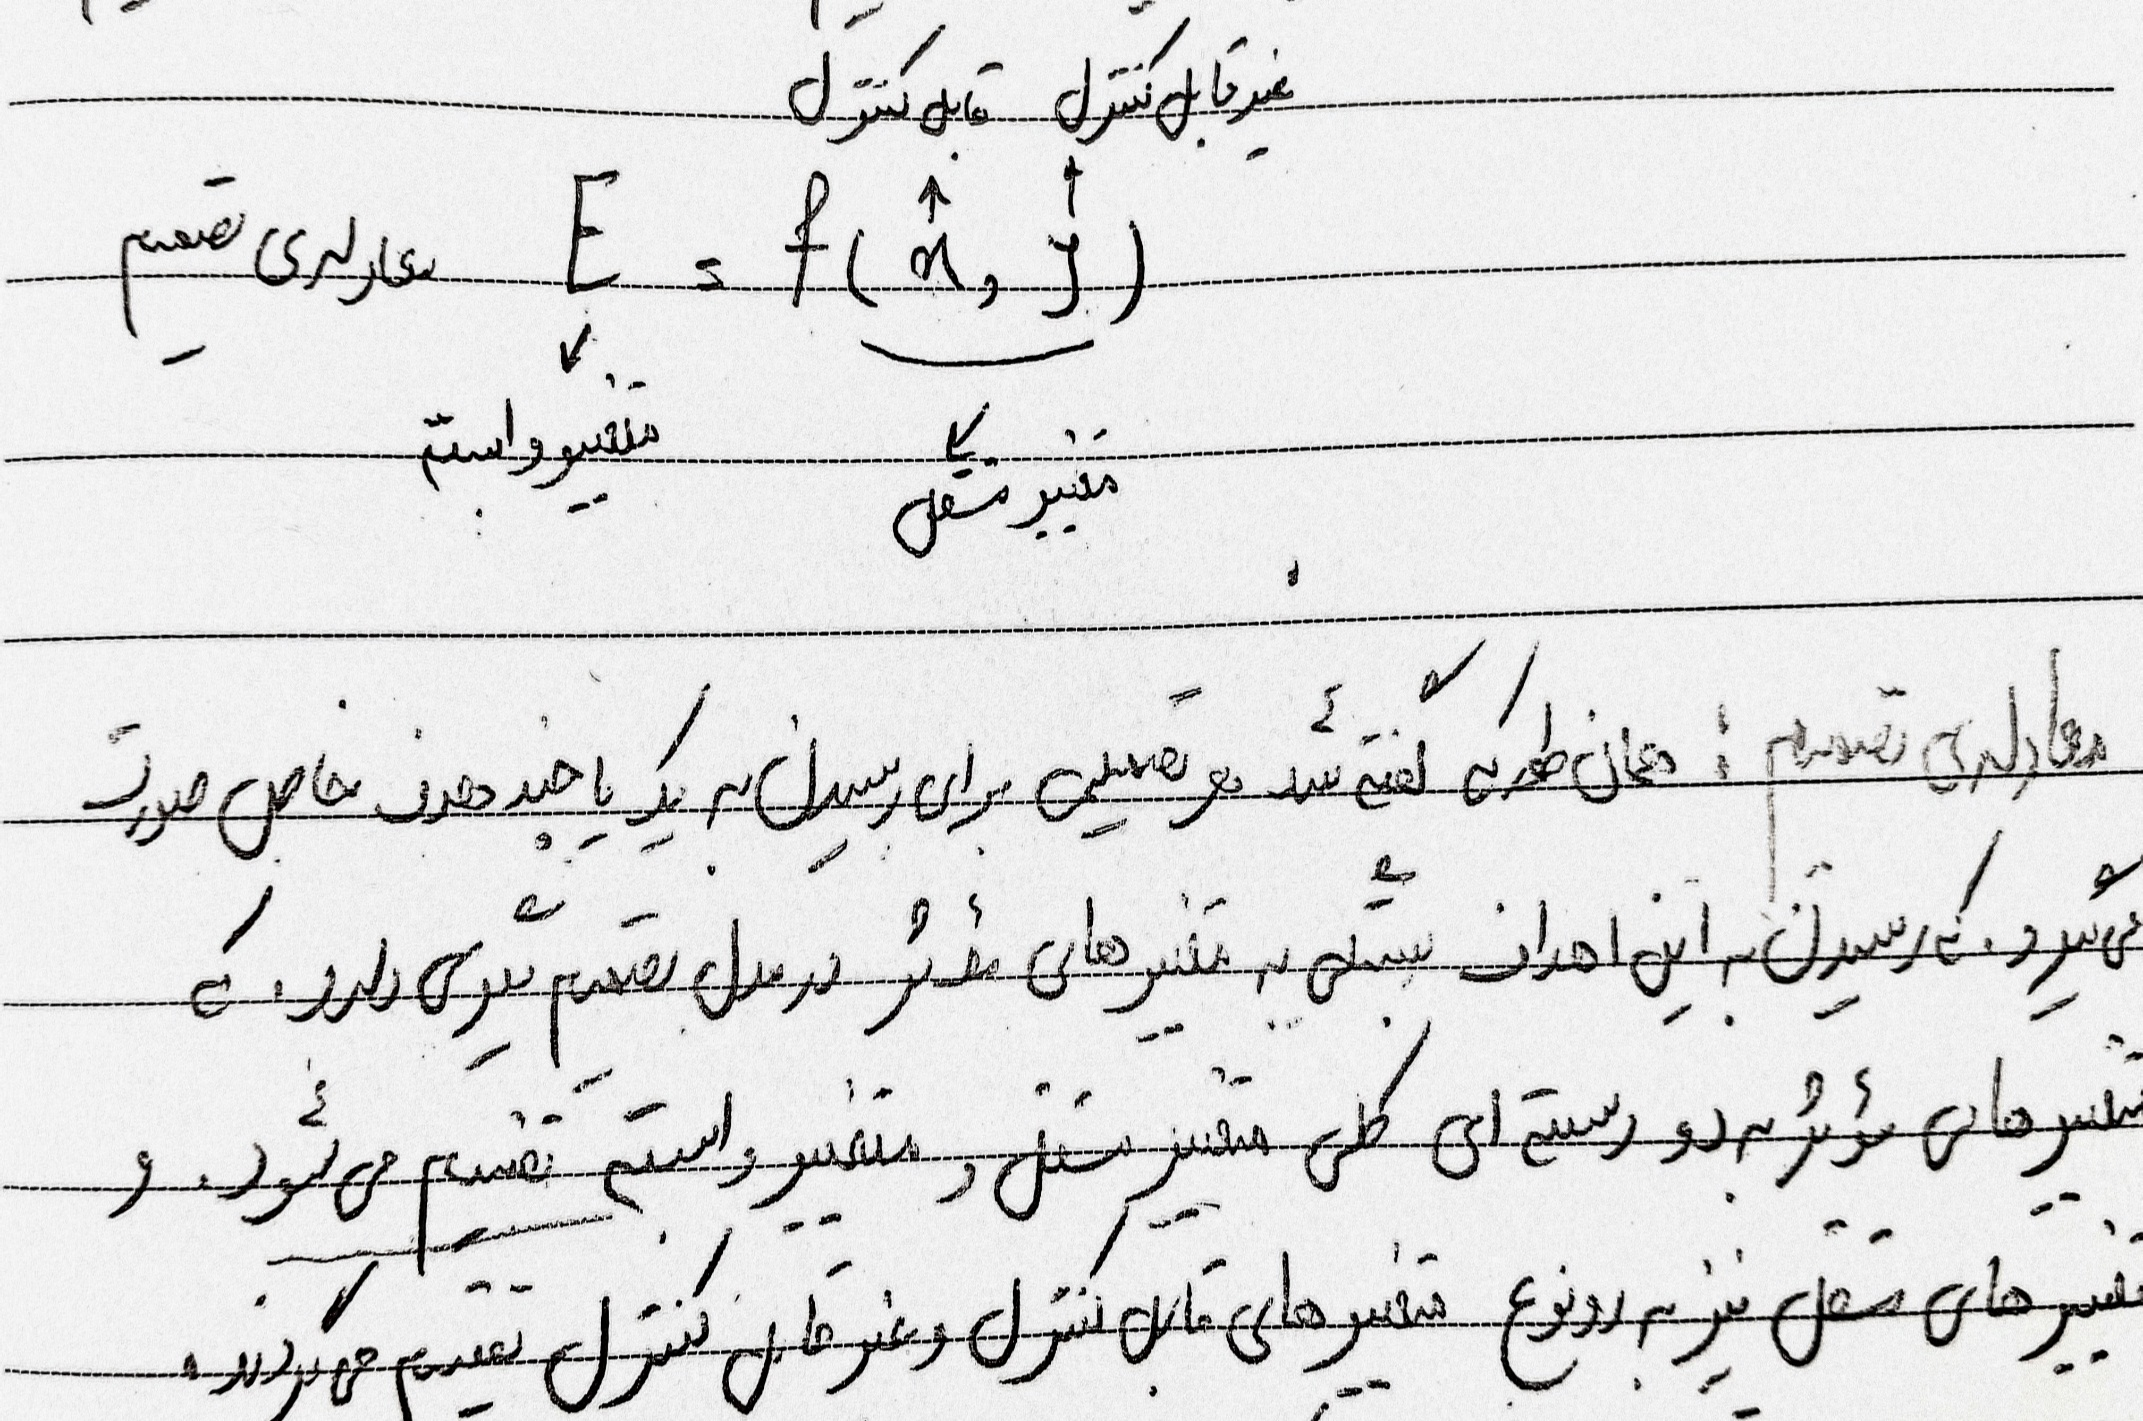 غیرقابل کنترل قابل کنترل
معادله‌ی تصمیم E = f(x, y)
متغییر وابسته
متغییر مستقل
معادله‌ی تصمیم : همان طور که گفته شد هر تصمیمی برای رسیدن به یک یا چند هدف خاص صورت
می‌گیرد. که رسیدن به این اهداف بستگی به متغییرهای مؤثر در مدل تصمیم گیری دارد. که
متغییرهای مؤثر به دو دسته‌ای کلی متغییر مستقل و متغییر وابسته تقسیم می‌شود. و
متغییرهای مستقل نیز به دو نوع متغییرهای قابل کنترل و غیرقابل کنترل تقسیم می‌گردند.